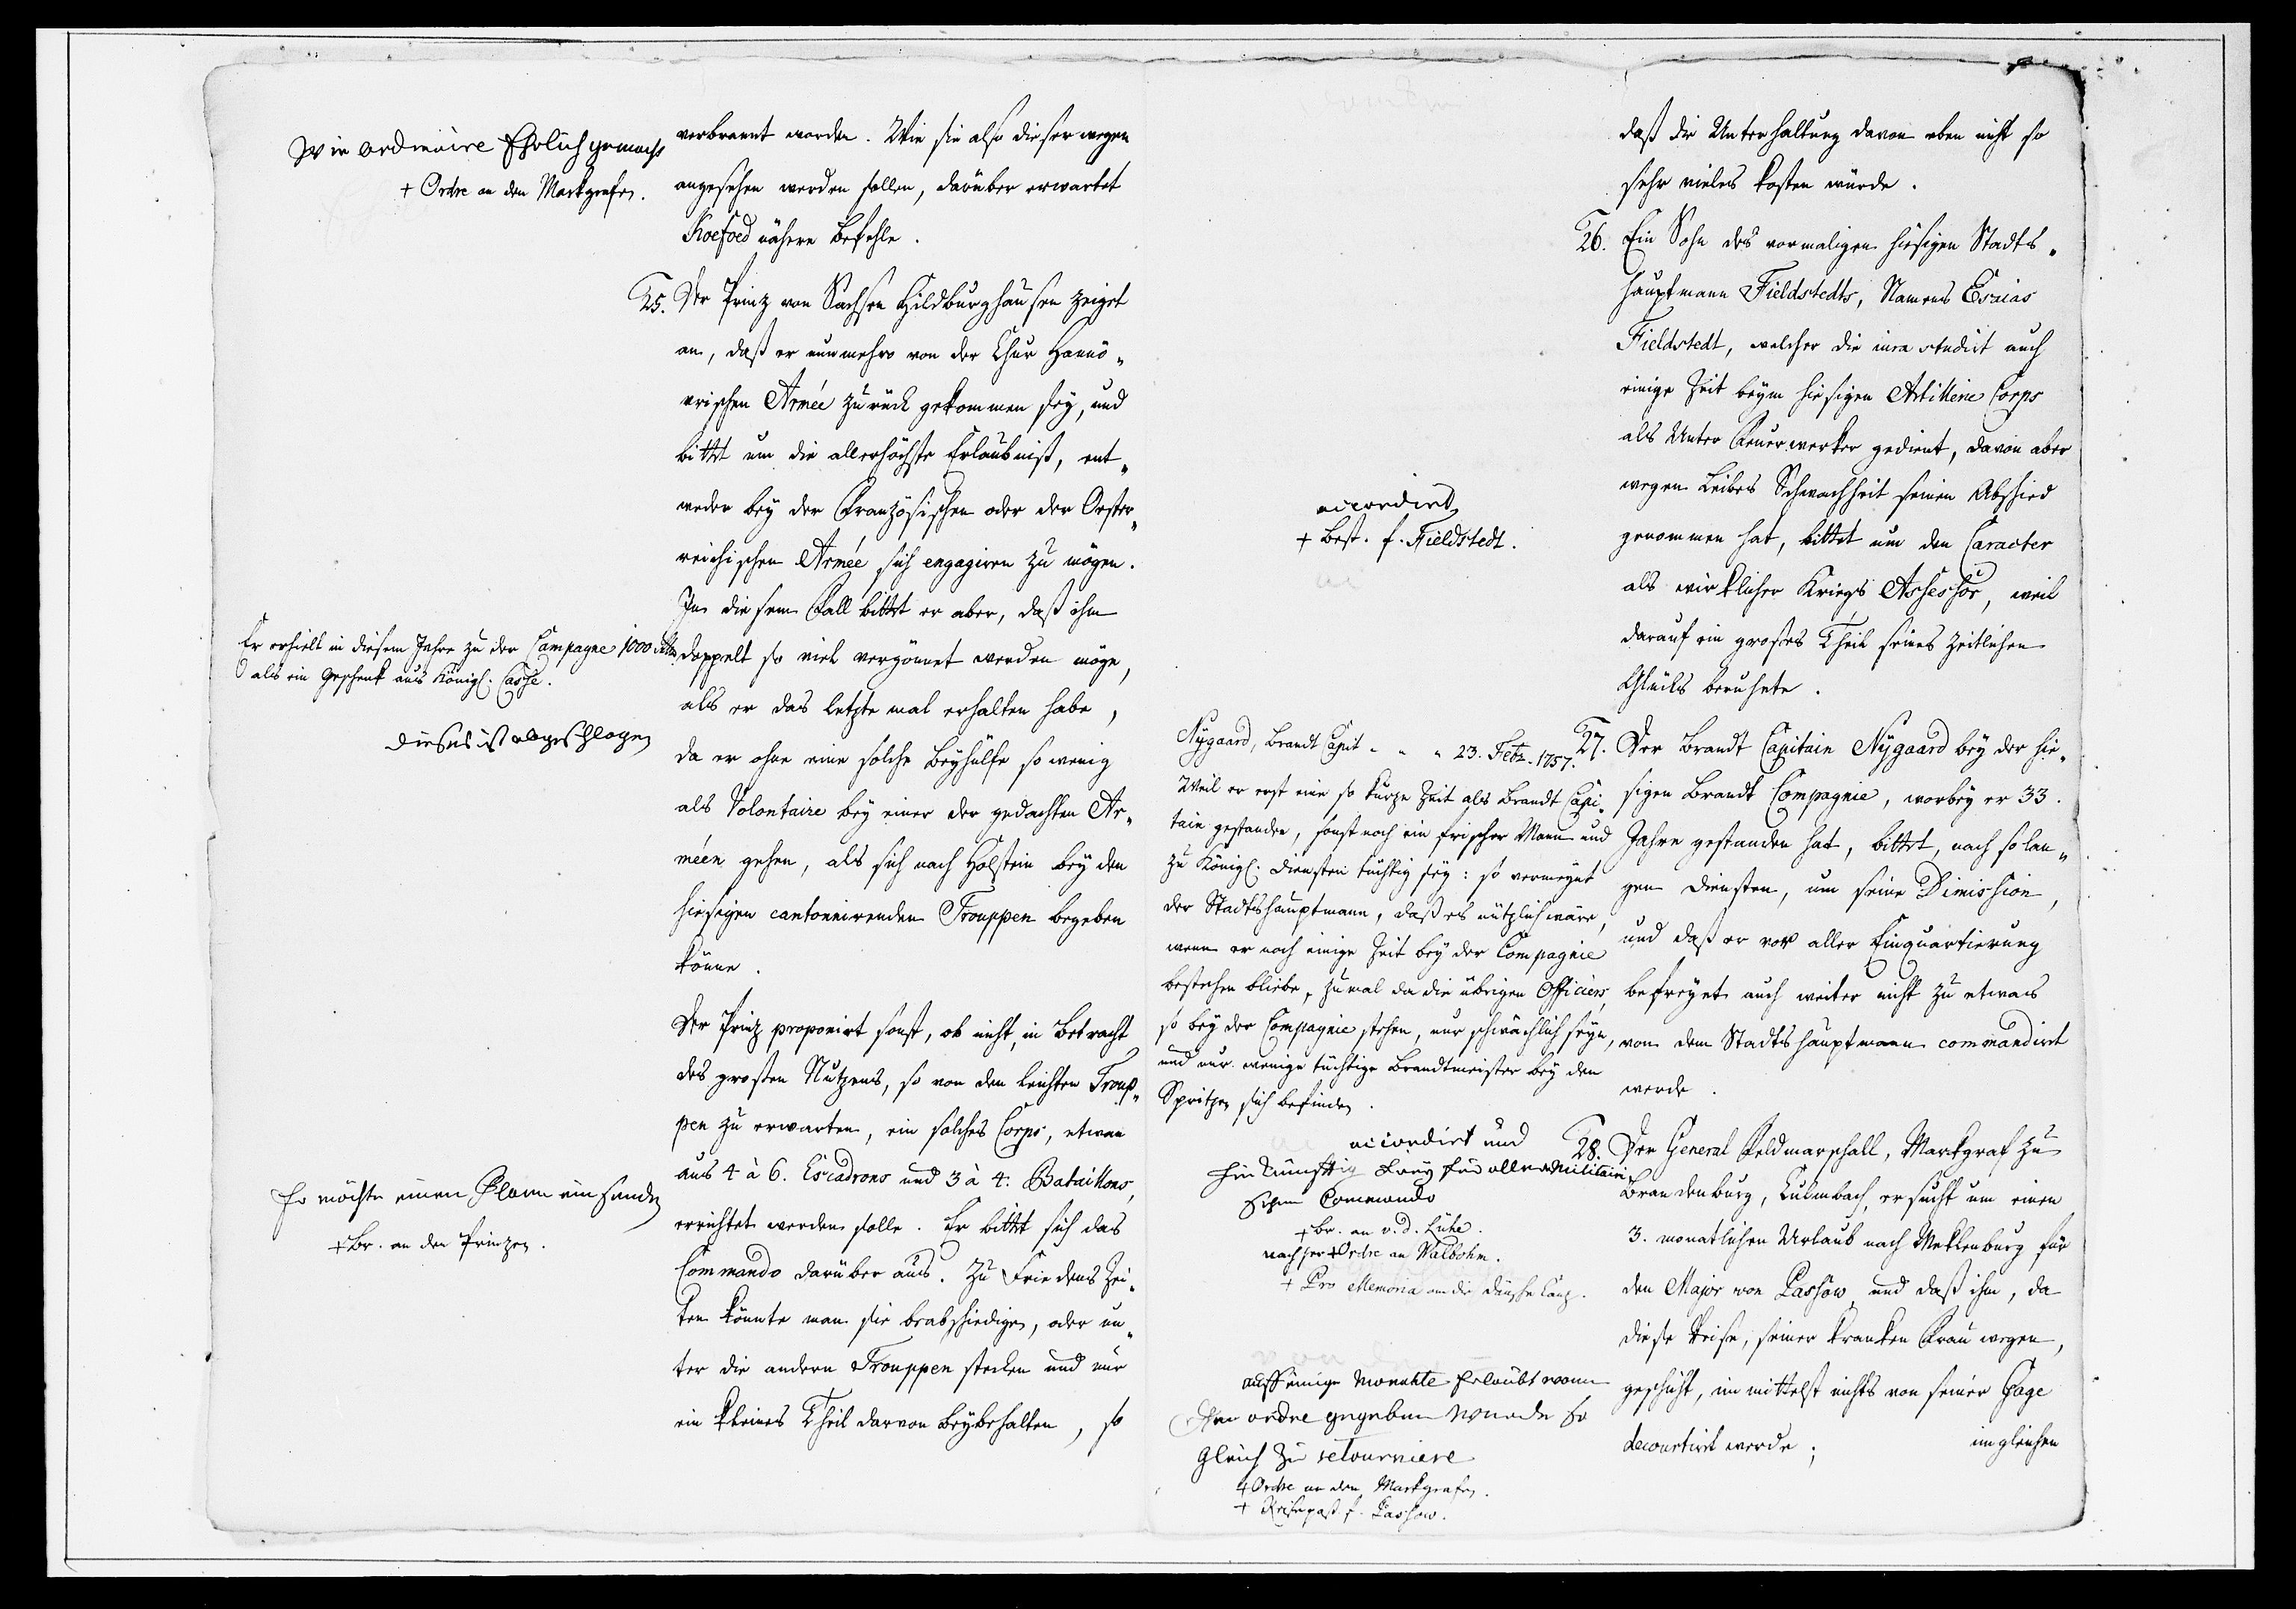 Wie ordinaire Ehrlich gemacht
+ Ordre an den Markgrafen.
verbrannt worden. Wie sie also dieserwegen
angesehen werden sollen, darüber erwartet
Koefoed nähere Befehle.
25. Der Prinz von Sachsen Hildburghausen zeiget
an, daß er nunmehro von der Chur Hannö„
vrischen Armée zurück gekommen sey, und
bittet um die allerhöchste Erlaubniß, ent„
weder bey der Französischen oder der Oester„
reichischen Armée sich engagiren zu mögen.
In diesem Fall bittet er aber, daß ihm
doppelt so viel vergönnet werden möge,
als er das letzte mal erhalten habe,
da er ohne eine solche Beyhülfe so wenig
als Volontaire bey einer der gedachten Ar„
méen gehen, als sich nach Holstein bey den
hiesigen cantonnirenden Trouppen begeben
könne.
Er erhielt in diesem Jahre zu der Campagne 1000
als ein Geschenk aus Königl. Casse.
dieses ist abgeschlagen
Der Prinz proponirt sonst, ob nicht, in Betracht
des großen Nutzens, so von den leichten Troup„
pen zu erwarten, ein solches Corps, etwan
aus 4 à 6. Escadrons und 3 à 4. Bataillons,
errichtet werden solle. Er bittet sich das
Commando darüber aus. Zu Friedens Zei„
ten könnte man sie beabschiedigen, oder un„
ter die andern Trouppen stecken und nur
ein kleines Theil davon beybehalten, so
Er möchte einen Plann einsenden
+ Br. an den Prinzen.
daß die Unterhaltung davon eben nicht so
sehr vieles kosten würde.
26. Ein Sohn des vormaligen hiesigen Stadts„
hauptmann Fieldstedts, Namens Esaias
Fieldstedt, welcher die iura studirt auch
einige Zeit beym hiesigen Artillerie Corps
als Unter Feuerwerker gedient, davon aber
wegen Leibes Schwachheit seinen Abschied
genommen hat, bittet um den Caracter
als wirklicher Kriegs Assessor, weil
darauf ein großes Theil seines zeitlichen
Glücks beruhete.
accordirt
+ Best. f. Fieldstedt.
27. Der Brandt Capitain Nygaard bey der hie„
sigen Brandt Compagnie, worbey er 33.
Jahre gestanden hat, bittet, nach so lan„
gen Diensten, um seine Dimission,
und daß er vor aller Einquartierung
befreyet auch weiter nicht zu etwas
von dem Stadtshauptmann commandirt
werde.
Nygaard, Brandt Capit - - - 23. Febr. 1757.
Weil er erst eine so kurze Zeit als Brandt Capi„
tain gestanden, sonst noch ein frischer Mann und
zu Königl. Diensten tüchtig sey: so vermeynt
der Stadtshauptmann, daß es nützlich wäre,
wenn er noch einige Zeit bey der Compagnie
bestehen bliebe, zumal da die übrigen Officiers,
so bey der Compagnie stehen, nur schwächlich seyn,
und nur wenige tüchtige Brandtmeister bey den
Spritzen sich befinden.
accordirt und
hinkünfftig frey für allen Militairi
schen Commando
+ Br. an v. d. Lühe.
nachher + Ordre an Walbohm.
+ Pro Memoria an die dänsche Canz.
28. Der General Feldmarschall, Markgraf zu
Brandenburg, Culmbach, ersucht um einen
3. monatlichen Urlaub nach Meklenburg für
den Major von Passow, und daß ihm, da
diese Reise, seiner kranken Frau wegen,
geschieht, immittelst nichts von seiner Gage
decourtirt werde;
imgleichen
auff einige Monahte Erlaubt wann
ordre gegeben wurde so
gleich zu retourniere
+ Ordre an den Markgrafen.
+ Reisepaß f. Passow.